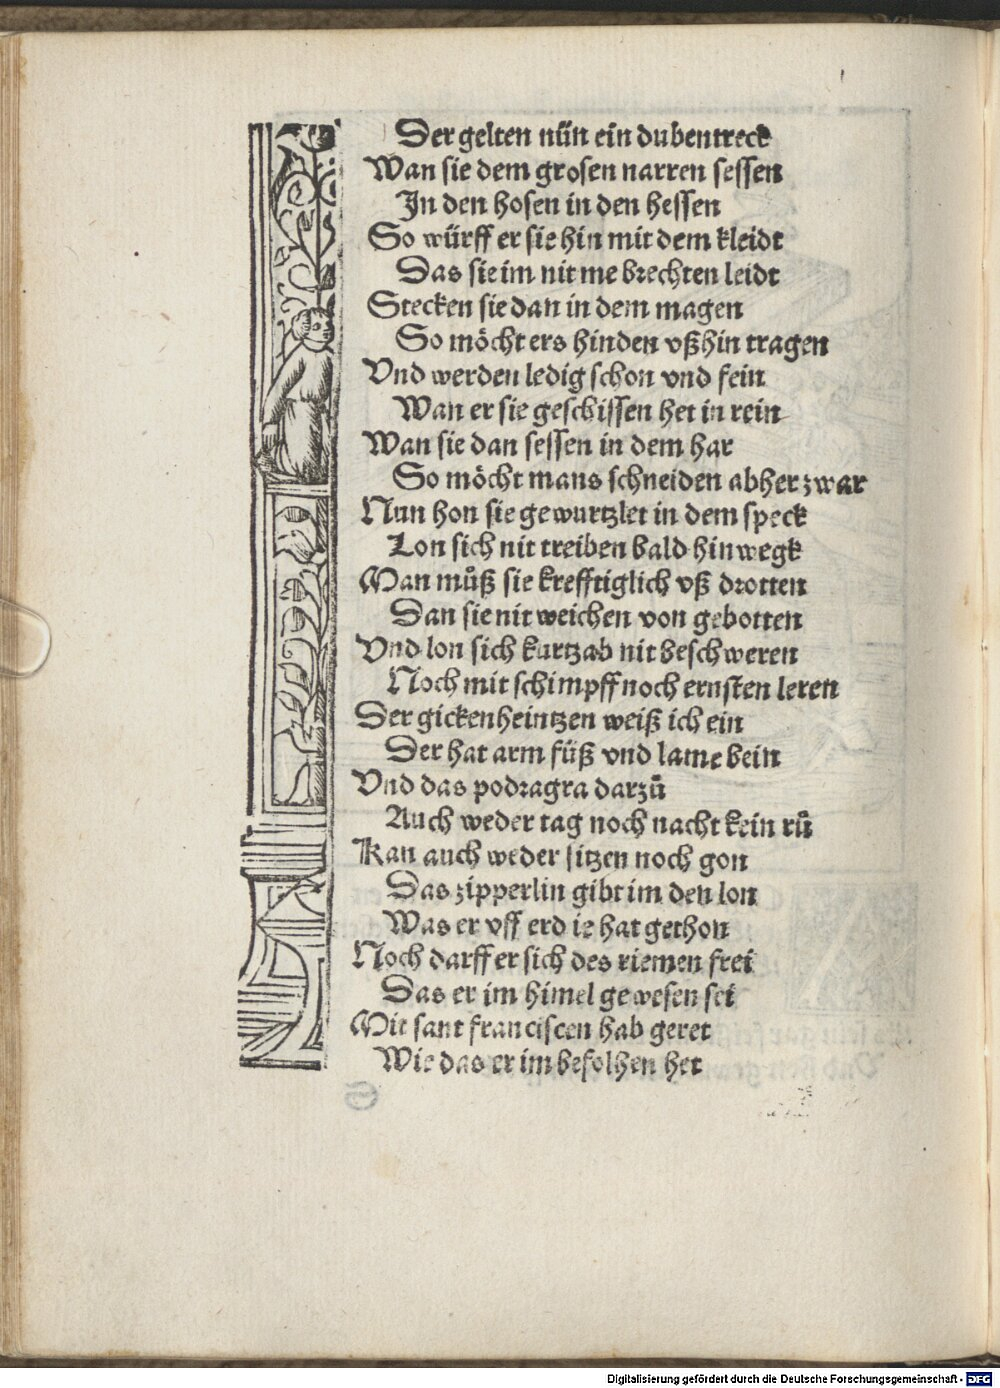 Der gelten nün ein dubentreck
Wan sie dem grosen narren sessen
In den hosen in den hessen
So würff er sie hin mit dem kleidt
Das sie im nit me brechten leidt
Stecken sie dan in dem magen
So möcht ers hinden vßhin tragen
Vnd werden ledig schon vnd fein
Wan er sie geschissen het in rein
Wan sie dan sessen in dem har
So möcht mans schneiden abher zwar
Nun hon sie gewurtzlet in dem speck
Lon sich nit treiben bald hinwegk
Man můß sie krefftiglich vß drotten
Dan sie nit weichen von gebotten
Vnd lon sich kurtzab nit beschweren
Noch mit schimpff noch ernsten leren
Der gickenheintzen weiß ich ein
Der hat arm füß vnd lame bein
Vnd das podragra darzů
Auch weder tag noch nacht kein rů
Kan auch weder sitzen noch gon
Das zipperlin gibt im den lon
Was er vff erd ie hat gethon
Noch darff er sich des riemen frei
Das er im himel gewesen sei
Mit sant franciscen hab geret
Wie das er im befolhen het
Digitalisierung gefördert durch die Deutsche Forschungsgemeinschaft - DFG